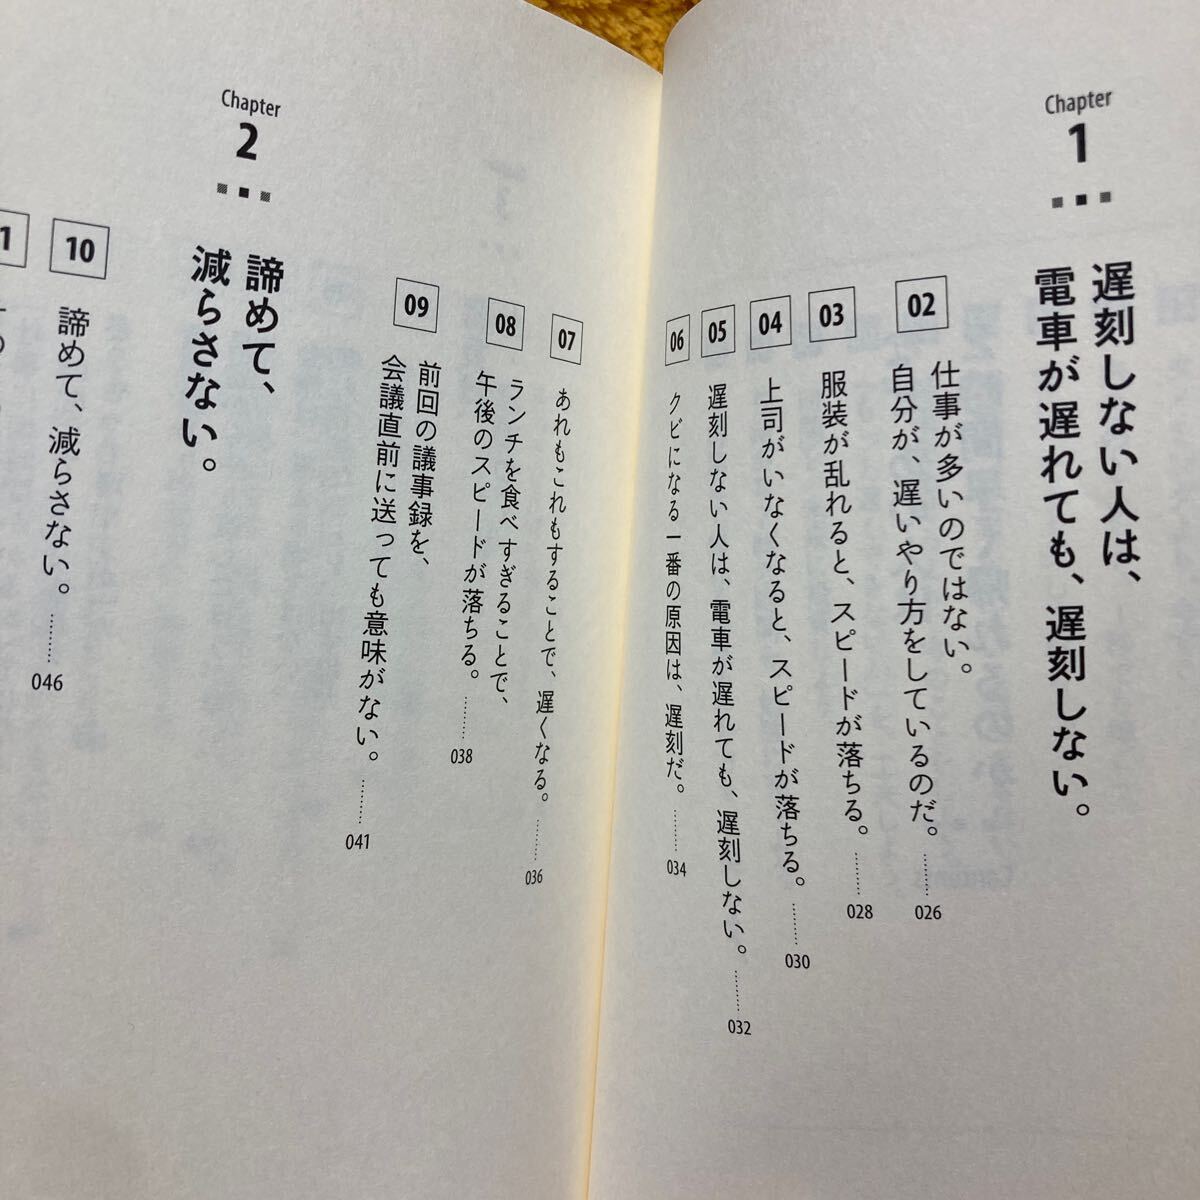 Chapter
1
遅刻しない人は、
電車が遅れても、遅刻しない。
02
仕事が多いのではない。
自分が、遅いやり方をしているのだ。
026
03
服装が乱れると、スピードが落ちる。
028
04
上司がいなくなると、スピードが落ちる。
030
05
遅刻しない人は、電車が遅れても、遅刻しない。
032
06
クビになる一番の原因は、遅刻だ。
034
07
あれもこれもすることで、遅くなる。
036
08
ランチを食べすぎることで、
午後のスピードが落ちる。
038
09
前回の議事録を、
会議直前に送っても意味がない。
041
Chapter
2
諦めて、
減らさない。
10
諦めて、減らさない。
046